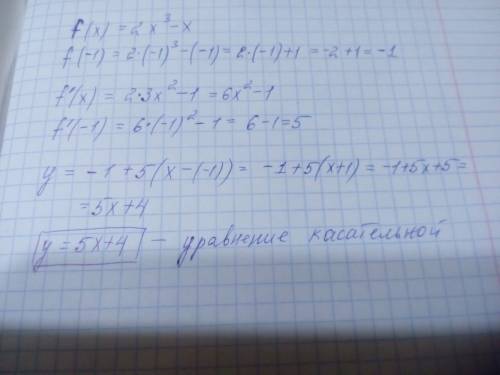 f(x) = 2x³-x
f(-1) = 2·(-1)³-(-1) = 2·(-1)+1 = -2+1 = -1
f'(x) = 2·3x²-1 = 6x²-1
f'(-1) = 6·(-1)²-1 = 6-1 = 5
y = -1+5(x-(-1)) = -1+5(x+1) = -1+5x+5 =
= 5x+4
y = 5x+4 — уравнение касательной